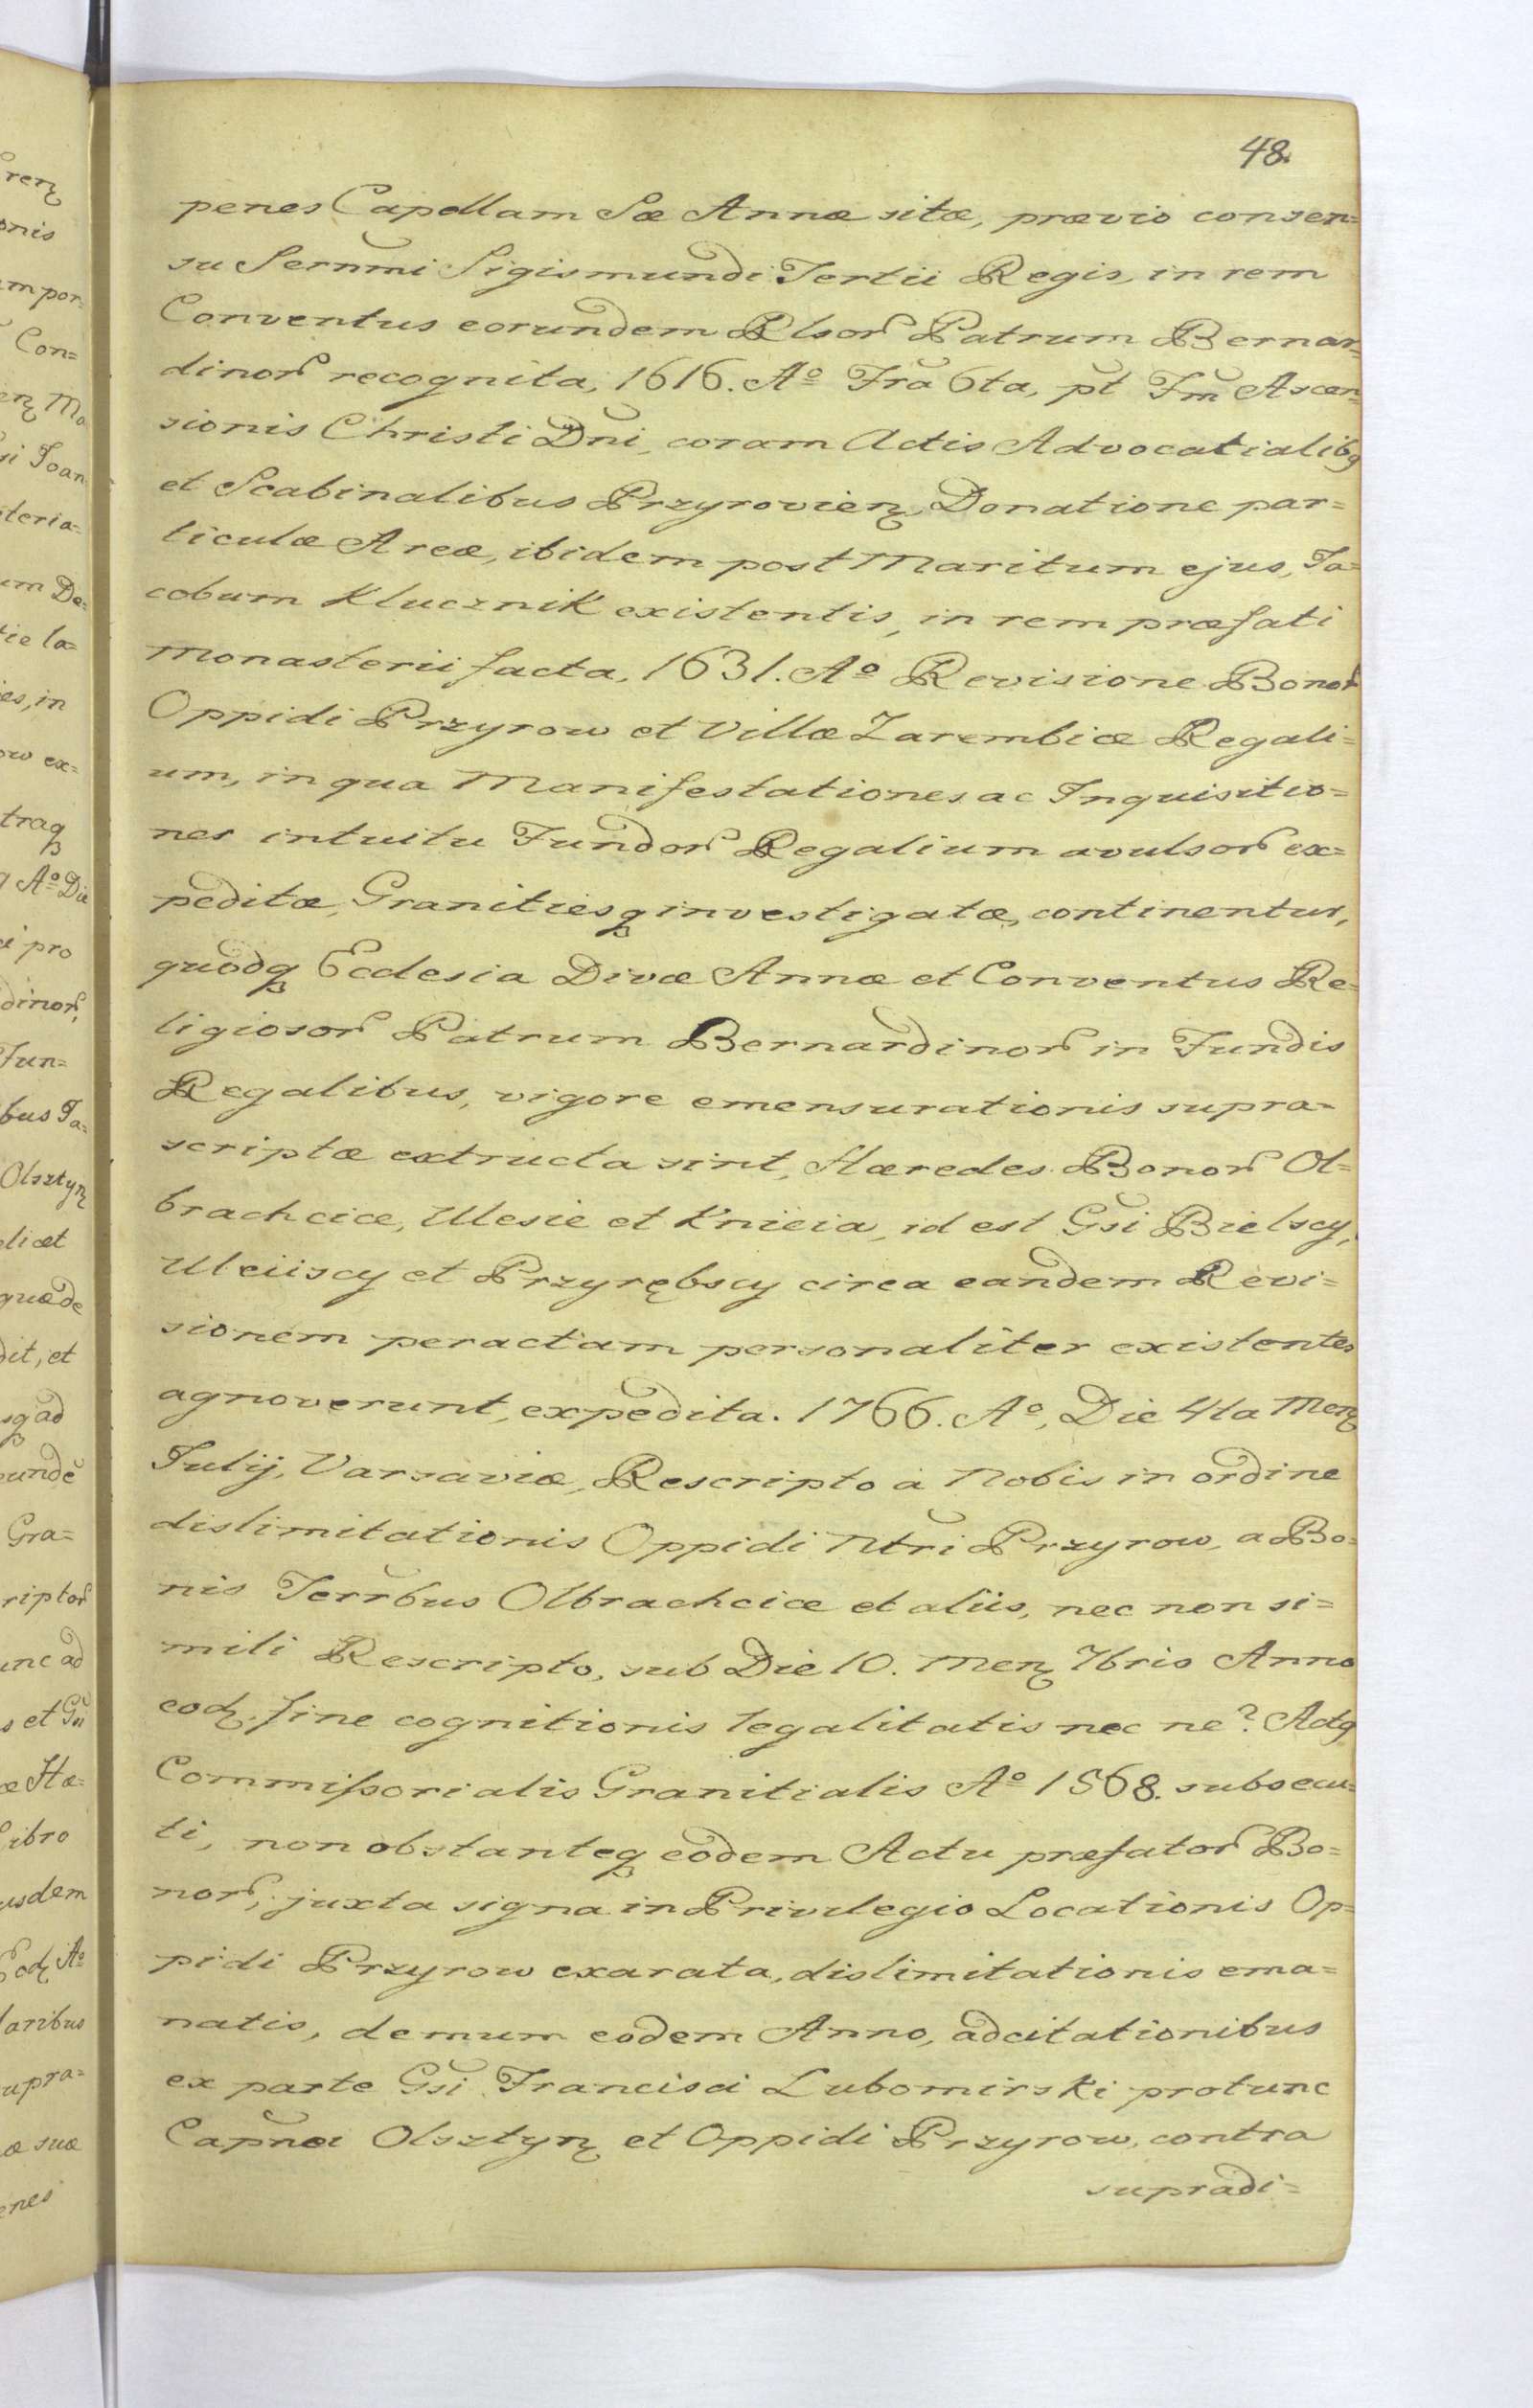 48.
penes Capellam Sæ Annæ sitæ, prævio consen=
su Sernmi Sigismundi Tertii Regis, in rem
Conventus eorundem Rlsor Patrum Bernar=
dinor recognita, 1616. Aº Fra 6ta, pt Fm Ascen=
sionis Christi Dni, coram Actis Advocatialibq
et Scabinalibus Przyrovienz, Donatione par=
ticulæ Areæ, ibidem post Maritum ejus, Ja=
cobum Klucznik existentis, in rem præfati
Monasterii facta, 1631. Aº Revisione Bonor
Oppidi Przyrow et Villæ Zarembice Regali=
um, in qua Manifestationes ac Inquisitio=
nes intuitu Fundor Regalium avulsor ex=
peditæ, Granitiesq investigatæ, continentur,
quodq Ecclesia Divæ Annæ et Conventus Re=
ligiosor Patrum Bernardinor in Fundis
Regalibus, vigore emensurationis supra=
scriptæ extructa sint, Hæredes Bonor Ol=
brachcice, Ulesie et Knieia, id est Gsi Bielscy,
Uleiiscy et Przyrębscy circa eandem Revi=
sionem peractam personaliter existentes
agnoverunt, expedita. 1766. Aº, Die 4ta Menz
Julij, Varsaviæ, Rescripto a Nobis in ordine
dislimitationis Oppidi Ntri Przyrow, a Bo=
nis Terrbus Olbrachcice et aliis, nec non si=
mili Rescripto, sub Die 10. Menz 7bris Anno
eodz. fine cognitionis legalitatis nec ne? Actq
Commissorialis Granitialis Aº 1568. subsecu=
ti, non obstanteq eodem Actu præfator Bo=
nor, juxta signa in Privilegio Locationis Op=
pidi Przyrow exarata, dislimitationis ema=
natis, demum eodem Anno, adcitationibus
ex parte Gsi Francisci Lubomirski protunc
Capnei Olsztynz et Oppidi Przyrow, contra
supradi=